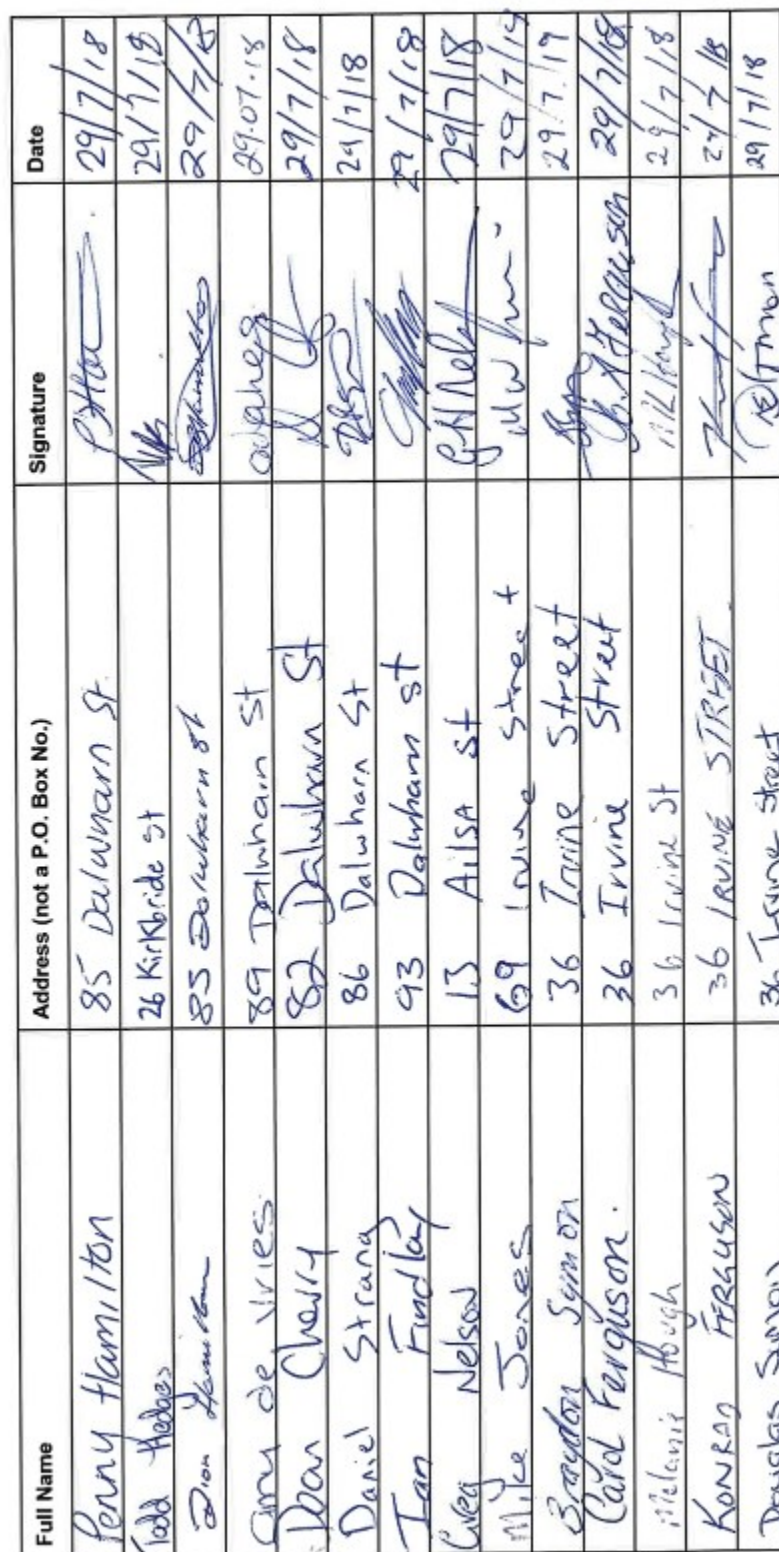 Full Name Address (not a P.O. Box No.) Signature Date
Penny Hamilton 85 Dalwharn St. 29/7/18
Todd Hedges 26 Kirkbride St 29/7/18
Dion Hamilton 85 Dalwharn St 29/7/18
Amy de Vries 89 Dalwharn St 29.07.18
Joan Cherry 82 Dalwharn St 29/7/18
Daniel Strang 86 Dalwharn St 29/7/18
Ian Findlay 93 Dalwharn St 29/7/18
Greg Nelson 13 Ailsa St G H Nelson 29/7/18
Mike Jones 69 Irvine Street 29/7/19
Braydon Symon 36 Irvine Street 29.7.19
Carol Ferguson. 36 Irvine Street Ferguson 29/7/18
Melanie Hough 36 Irvine St 29/7/18
KONRAD FERGUSON 36 IRVINE STREET. 29/7/18
Douglas Symon 36 Irvine Street 29/7/18